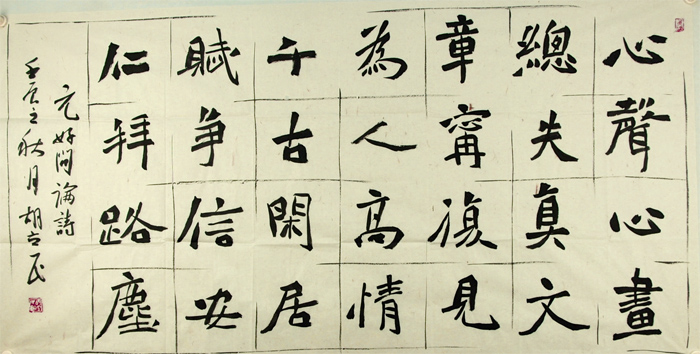 心聲心畫
總失真文
章甯復見
為人高情
千古閑居
賦争信安
仁拜路塵
元好問論詩
壬辰之秋月胡民